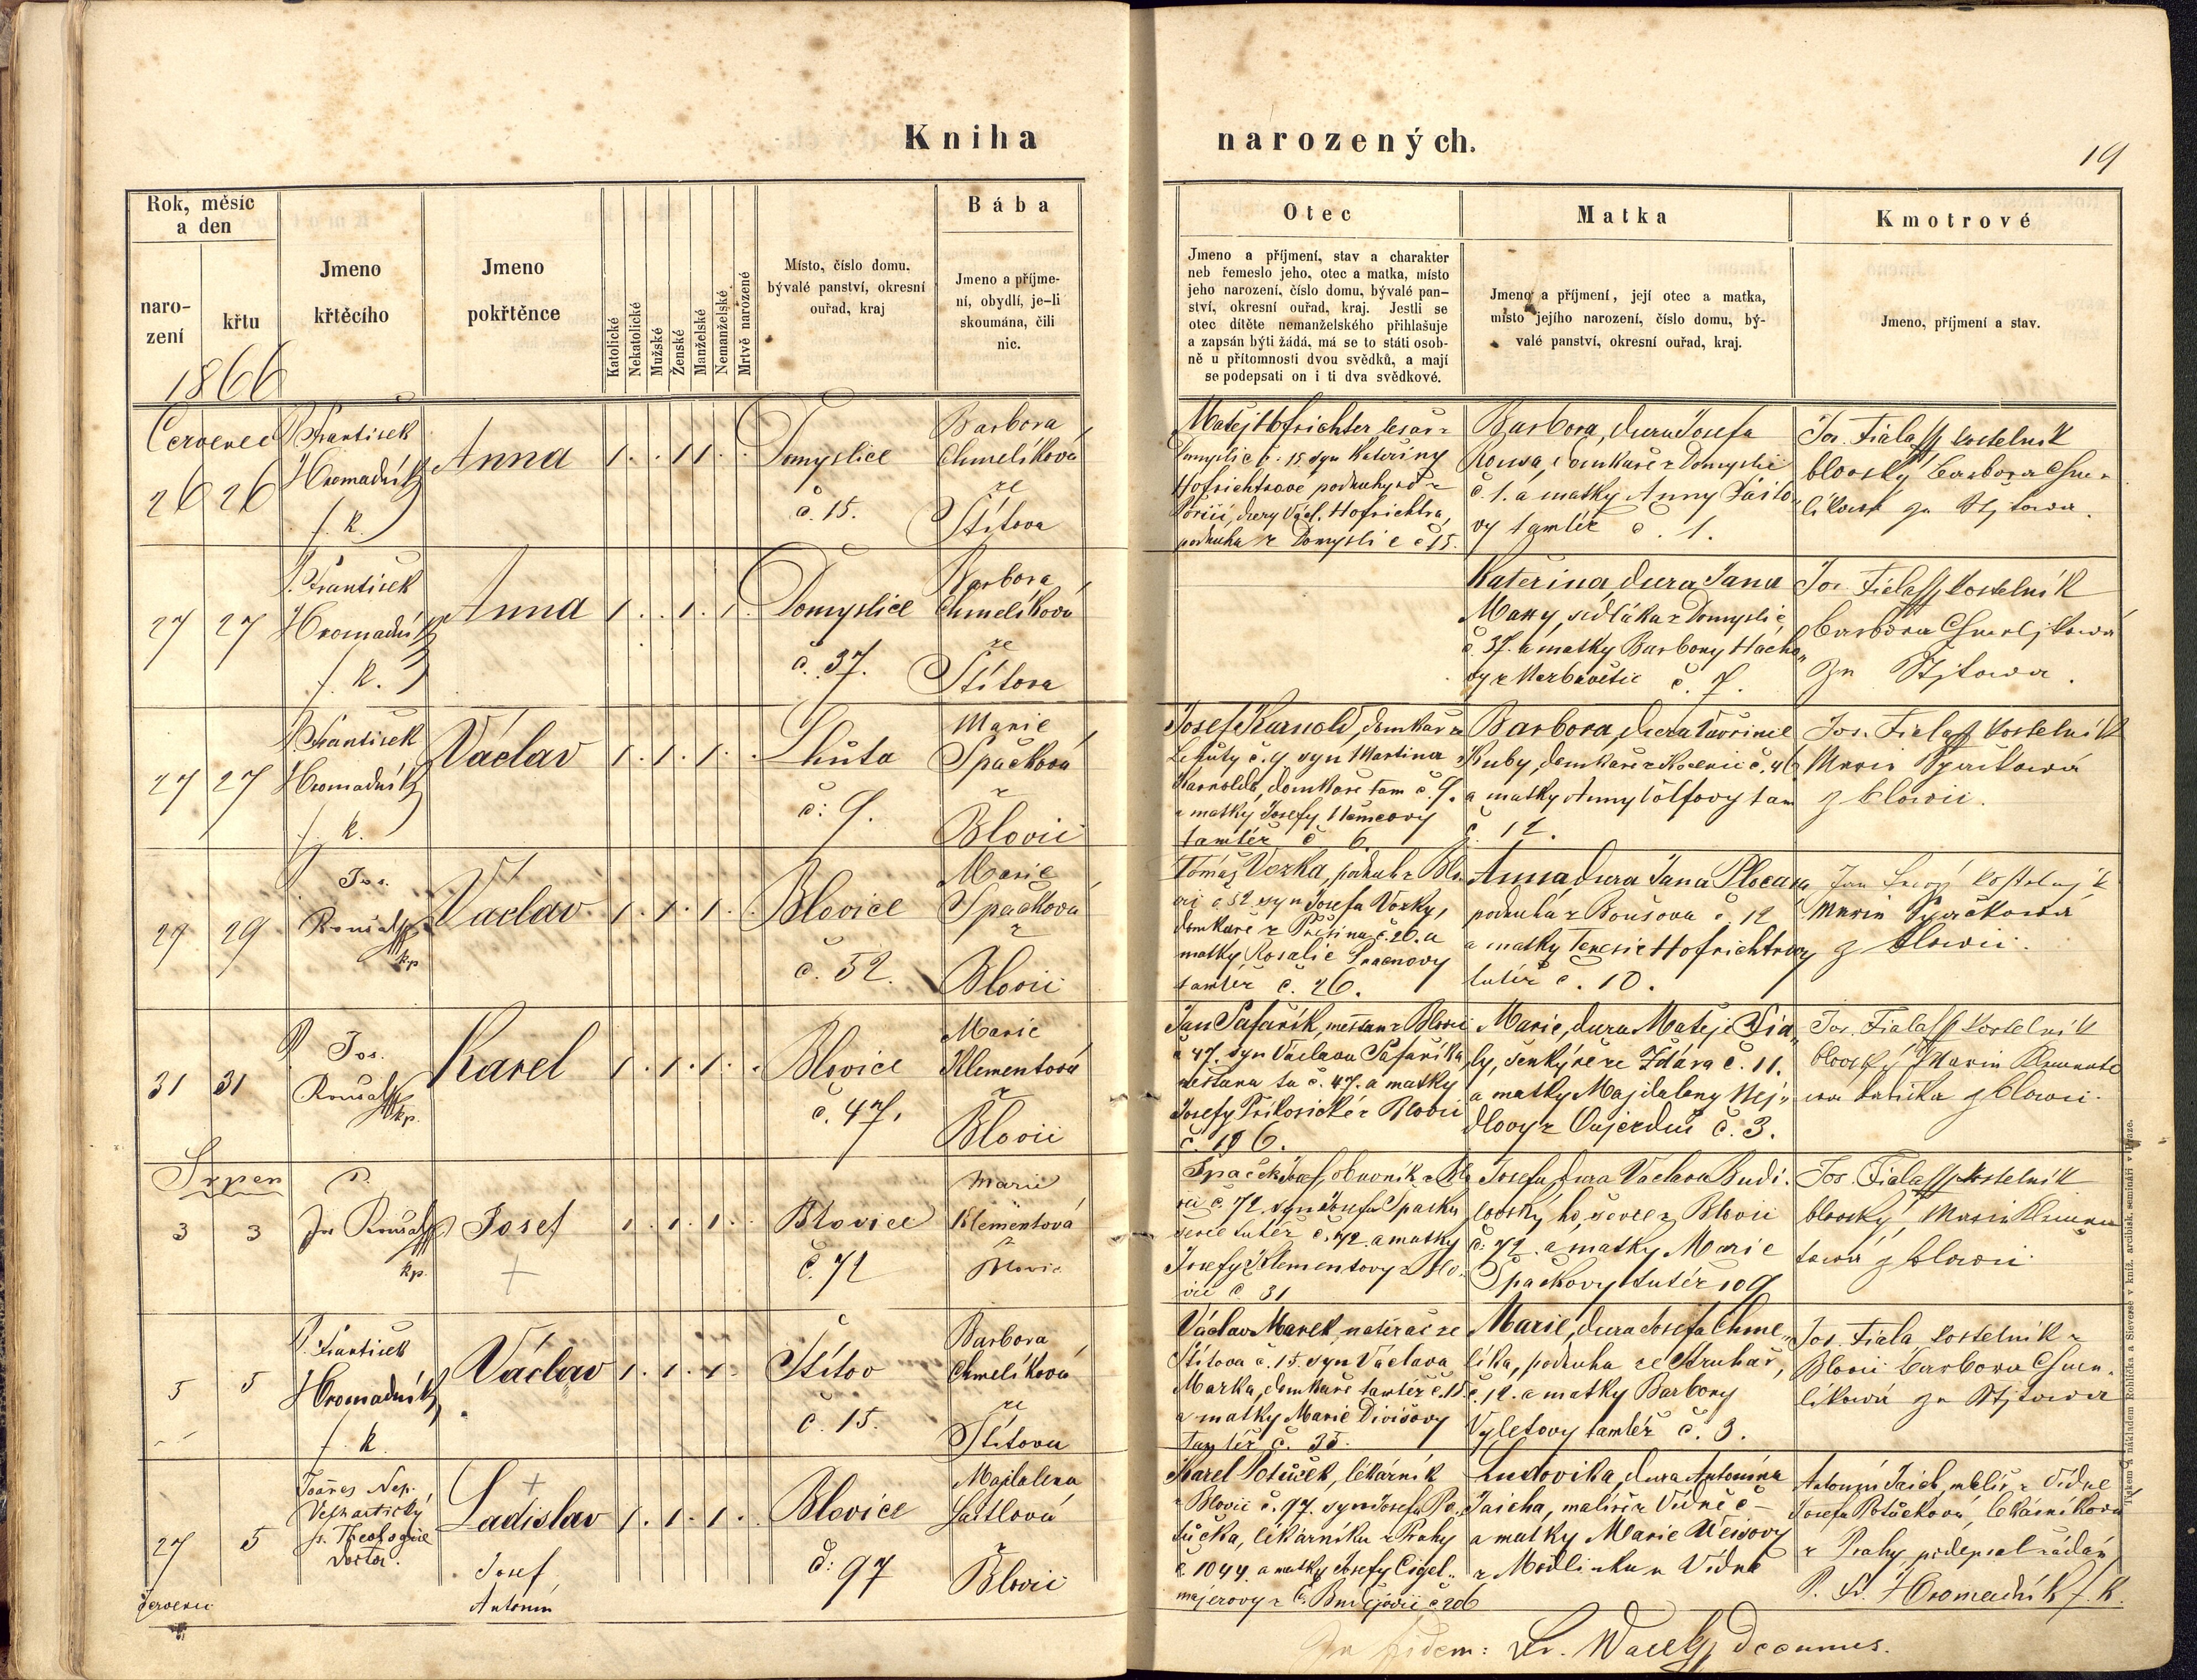 Kniha
narozených.
19
Rok, měsíc
a den
naro-
zení
křtu
1866
Jmeno
křtěcího
Jmeno
pokřtěnce
Katolické
Nekatolické
Mužské
Ženské
Manželské
Nemanželské
Mrtvě narozené
Místo, číslo domu,
bývalé panství, okresní
ouřad, kraj
Bába
Jmeno a příjme-
ní, obydlí, je-li
skoumána, čili
nic.
Otec
Jmeno a příjmení, stav a charakter
neb řemeslo jeho, otec a matka, místo
jeho narození, číslo domu, bývalé pan-
ství, okresní ouřad, kraj. Jestli se
otec dítěte nemanželského přihlašuje
a zapsán býti žádá, má se to státi osob-
ně u přítomnosti dvou svědků, a mají
se podepsati on i ti dva svědkové.
Matka
Jmeno a příjmení, její otec a matka,
místo jejího narození, číslo domu, bý-
valé panství, okresní ouřad, kraj.
Kmotrové
Jmeno, příjmení a stav.
Červenec
26 26
P. František
Hromadník
f. k.
Anna
1 . . 1 1 . .
Domyslice
č. 15.
Barbora
Chmelíková
ze
Štítova
Matěj Hofrichter tesař z
Domyslic č. 15 syn Kateřiny
Hofrichtrové podruhyně z
dcery Václ. Hofrichtra,
podruha z Domyslic č 15.
Barbora, dcera Josefa
domkaře z Domyslic
č. 1. a matky Anny
vy tamtéž č. 1.
Jos. Fiala kostelník
blovský Barbora Chme-
líková ze Stjtowa.
27 27
P. František
Hromadník
f. k.
Anna
1 . . 1 . 1 .
Domyslice
č. 37.
Barbora
Chmelíková
ze
Štítova
Kateřina, dcera Jana
sedláka z Domyslic
č. 37. a matky Barbory Hácho-
vy z č. 7.
Jos. Fiala kostelník
Barbora Chmeljkowá
ze Stjtowa.
27 27
P. František
Hromadník
f. k.
Václav
1 . 1 . 1 . .
Lhůta
č: 9.
Marie
Špačková
z
Blovic
Josef Karnold, domkář z
Lhůty č. 9 syn Martina
Karnolda, domkáře tam č. 9.
a matky Josefy Němcovy
tamtéž č 6.
Barbora, dcera Vavřince
Kuby, domkáře z č. 46
a matky Anny tam
č. 12.
Jos. Fiala kostelník
Marie Špačkowá
z blowic.
27 29
Jos.
Roušal
kp
Václav
1 . 1 . 1 . .
Blovice
č. 52.
Marie
Špačková
z
Blovic
Tomáš Vozka, podruh z Blo-
vic č 52 syn Josefa Vozky,
domkáře z Přešína č. 26. a
matky Rosalie
tamtéž č. 26.
Anna dcera Jana
podruha z Boušova č. 12
a matky Terezie Hofrichtrovy
tutéž č. 10.
Jan kostelnjk
Marie Špačkowá
z blowic.
31 31
P. Jos.
Roušal
kp.
Karel
1 . 1 . 1 . .
Blovice
č. 47.
Marie
Klementová
z
Blovic
Jan Šafařík, mešťan z Blovic
č 47. syn Václava Šafaříka,
mešťana tu č. 47. a matky
Josefy Příkosické z Blovic
č. 186.
Marie, dcera Matěje Fia-
ly, šenkýře ze Ždára č. 11.
a matky Majdaleny Nej-
dlovy z Oujezdu č. 3.
Jos. Fiala kostelník
blovský Marie Klemento-
wa babička z blowic.
Srpen
3 3
P.
Jos Roušal
kp.
Josef
1 . 1 . 1 . .
Blovice
č. 72
Marie
Klementová
z
Blovic
Špaček Josef, obuvník z Blo-
vic č. 72. syn Josefa Špačka
ševce tutéž č. 72. a matky
Josefy Klementovy z Blo-
vic č 31
Josefa, dcera Václava Budi-
lovský ho, ševce z Blovic
č: 72. a matky Marie
Špačkovy tutéž 109
Jos. Fiala kostelník
blovský, Marie Klemen-
towá z blowic
5 5
P. František
Hromadník
f. k.
Václav
1 . 1 . 1 .
Štítov
č. 15.
Barbora
Chmelíková
ze
Štítova
Václav Marek, natěrač ze
Štítova č. 15. syn Václava
Marka, domkáře tamtéž č. 15
a matky Marie Divišovy
tamtéž č. 35.
Marie, dcera Josefa Chme-
líka, podruha ze Struhař,
č. 12. a matky Barbory
Vyletovy tamtéž č. 3.
Jos. Fiala kostelník z
Blovic Barbora Chme-
líkowá ze Stjtowa
27 5
července
Joanes Nep.
Velhartický
ss. Theologiae
Doctor.
Ladislav
Josef
Antonín
1 . 1 . 1 . .
Blovice
č: 97
Majdalena
Saitlová
z
Blovic
Karel Potůček, lékárník
z Blovic č. 97. syn Josefa Po-
tůčka, lékárníka z Prahy
č. 1044. a matky Josefy Cigel-
majerovy z Č. Budějovic č 206
Ludovika, dcera Antonína
Jaicha, malíře z Vídně č -
a matky Marie Weisovy
z Mödlinku u Vídně
Antonín Jaich, malíř z Vídně
Josefa Potůčková, lékárníková
z Prahy, podepsal řádán
P. Fr. Hromadník f. k.
In fidem: Fr. Wacek, Decanus.
Tiskem a nákladem Rohlíčka a Sieverse v kníž. arcibisk. semináři v Praze.